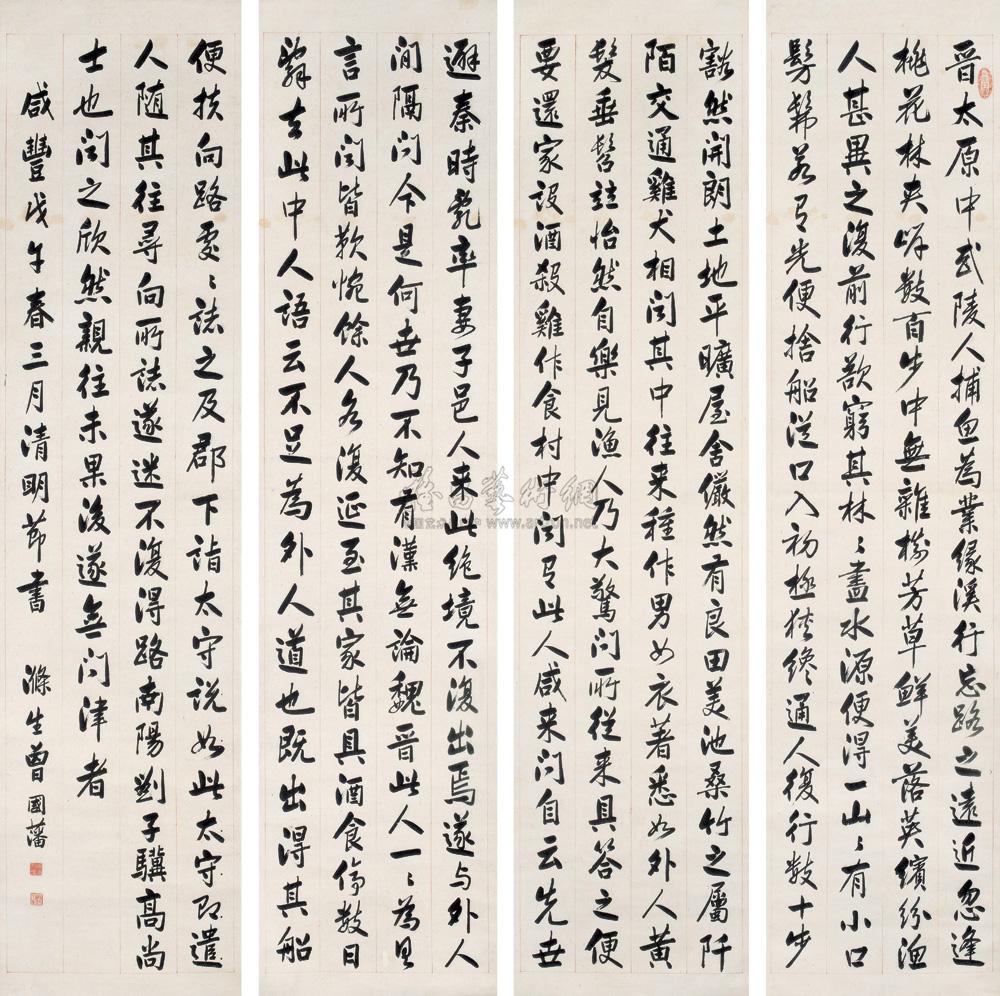 晉太原中武陵人捕魚為業緣溪行忘路之遠近忽逢
桃花林夾岸數百步中無雜樹芳草鮮美落英繽紛漁
人甚異之復前行欲窮其林〻盡水源便得一山〻有小口
髣髴若有光便捨船從口入初極狹纔通人復行數十步
豁然開朗土地平曠屋舍儼然有良田美池桑竹之屬阡
陌交通雞犬相聞其中往来種作男女衣著悉如外人黃
髮垂髫竝怡然自樂見漁人乃大驚問所從来具答之便
要還家設酒殺雞作食村中聞有此人咸来問自云先世
避秦時亂率妻子邑人来此絕境不復出焉遂与外人
間隔問今是何世乃不知有漢無論魏晉此人一〻為具
言所聞皆歎惋餘人各復延至其家皆具酒食停數日
辭去此中人語云不足為外人道也既出得其船
便扶向路處〻誌之及郡下詣太守說如此太守即遣
人随其往尋向所誌遂迷不復得路南陽劉子驥高尚
士也聞之欣然親往未果後遂無問津者
咸豐戊午春三月清明節書 滌生曾國藩
藝術網